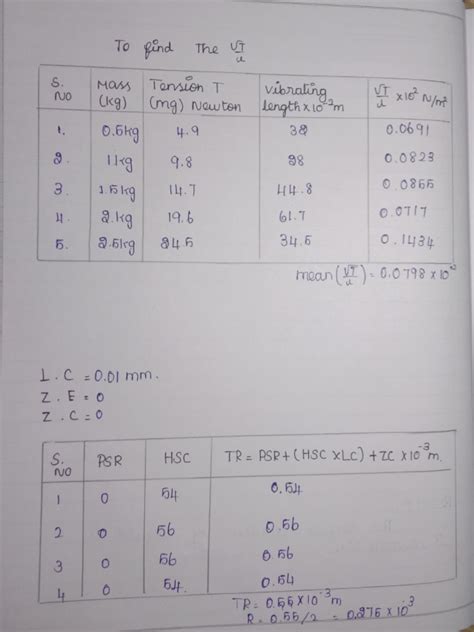 To find The √T/u
S. NO | Mass (kg) | Tension T (mg) Newton | Vibrating length × 10⁻²m | √T/u × 10² N/m²
1. | 0.5kg | 4.9 | 38 | 0.0691
2. | 1kg | 9.8 | 38 | 0.0823
3. | 1.5kg | 14.7 | 44.8 | 0.0855
4. | 2.kg | 19.6 | 61.7 | 0.0717
5. | 2.5kg | 24.5 | 34.5 | 0.1434
mean (√T/u) = 0.0798 × 10⁻²
L.C = 0.01 mm.
Z.E = 0
Z.C = 0
S. NO | PSR | HSC | TR = PSR + (HSC × LC) + ZC × 10⁻³ m.
1 | 0 | 54 | 0.54
2 | 0 | 56 | 0.56
3 | 0 | 56 | 0.56
4 | 0 | 54. | 0.54
TR = 0.55 × 10⁻³ m
R = 0.55/2 = 0.275 × 10⁻³